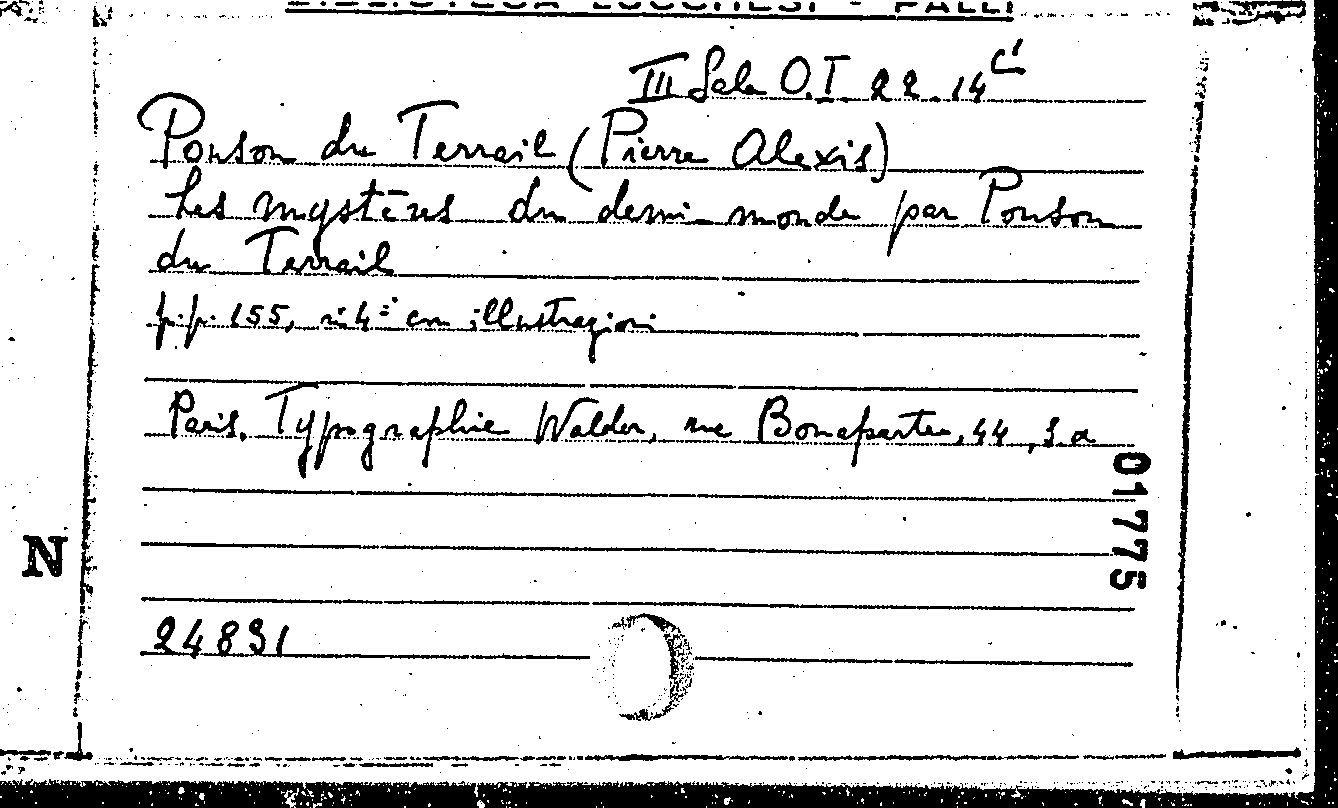 BIBLIOTECA LUCCHESI - PALLI
III Sala O.I. 22.14 c¹
Ponson du Terrail (Pierre Alexis)
Les mystères du demi-monde par Ponson
du Terrail
p.p. 155, in 4º con illustrazioni
Paris. Typographie Walder, rue Bonaparte, 44, s.a
01775
N
24891